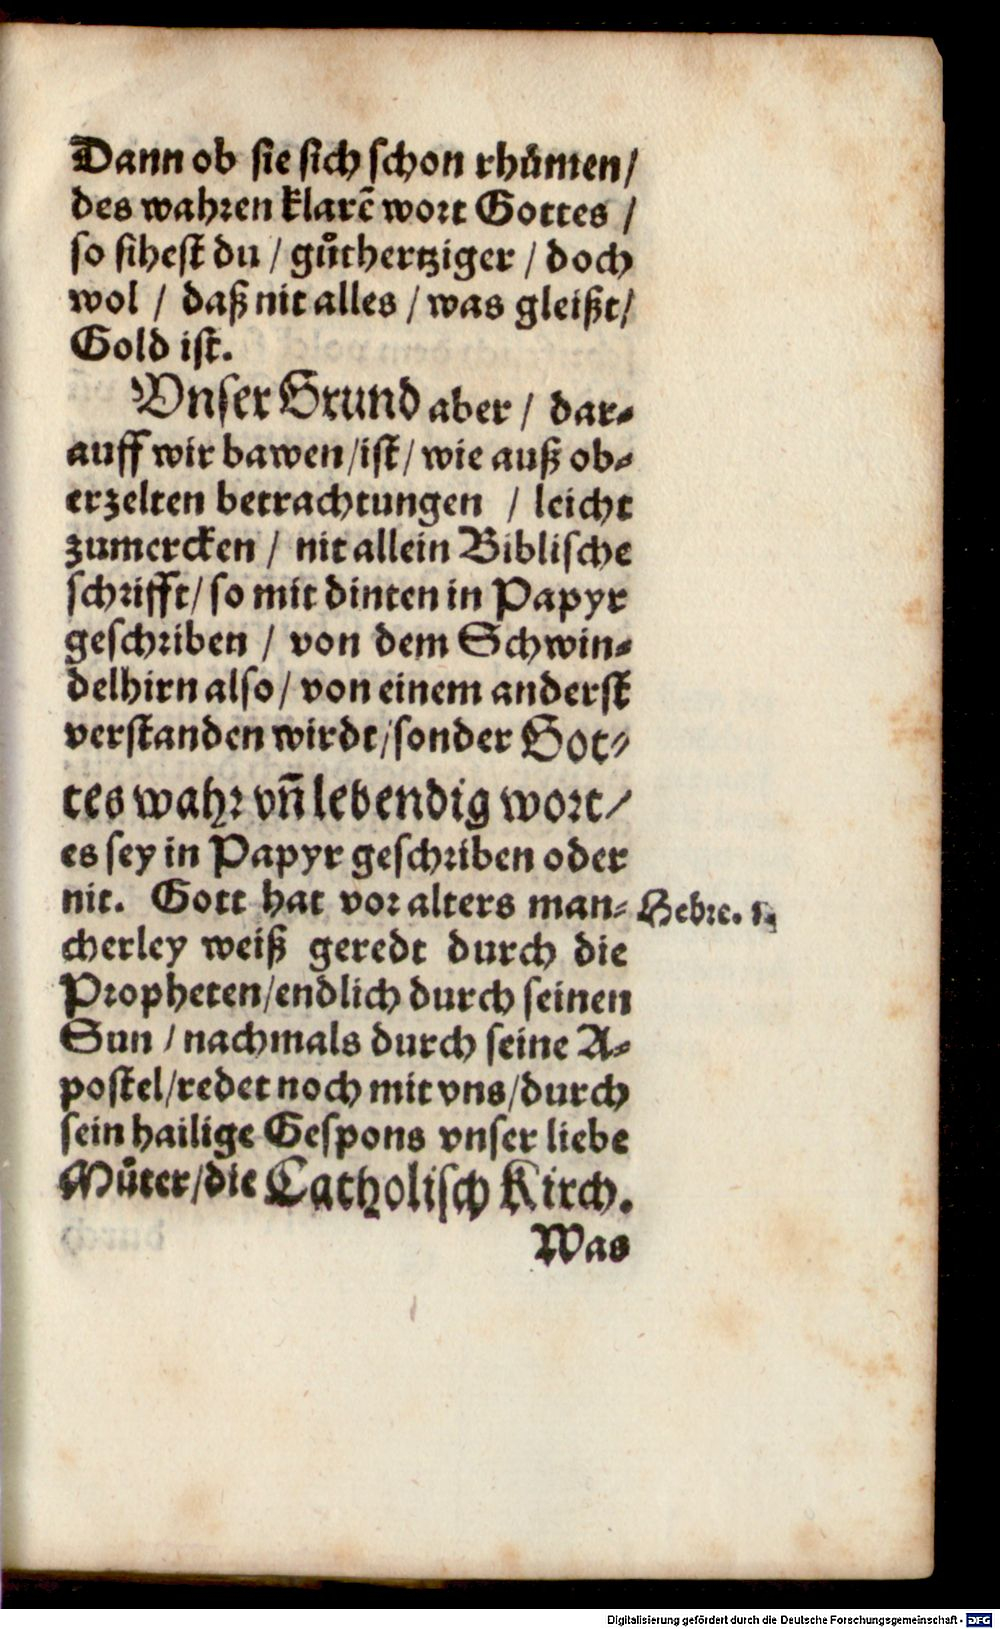 Dann ob sie sich schon rhuͤmen/
des wahren klarē wort Gottes /
so sihest du / guͦthertziger / doch
wol / daß nit alles / was gleißt/
Gold ist.
Vnser Grund aber / dar-
auff wir bawen/ist/ wie auß ob-
erzelten betrachtungen / leicht
zumercken / nit allein Biblische
schrifft/ so mit dinten in Papyr
geschriben / von dem Schwin-
delhirn also/ von einem anderst
verstanden wirdt/sonder Got-
tes wahr vñ lebendig wort/
es sey in Papyr geschriben oder
nit. Gott hat vor alters man-
Hebre. 1.
cherley weiß geredt durch die
Propheten/endlich durch seinen
Sun / nachmals durch seine A-
postel/redet noch mit vns/durch
sein hailige Gespons vnser liebe
Muͦter/die Catholisch Kirch.
Was
Digitalisierung gefördert durch die Deutsche Forschungsgemeinschaft - DFG